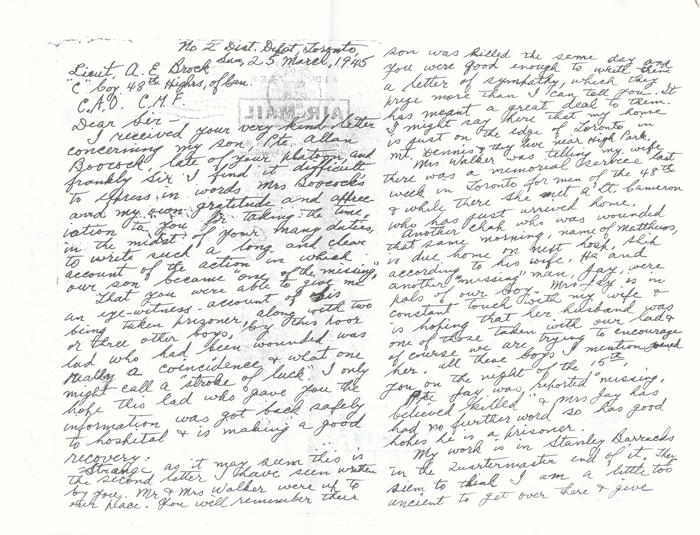 No 2 Dist. Depot, Toronto,
Sun, 25 March, 1945
Lieut. A. E. Brock
"C" Coy. 48th Highrs, of Can.
C.A.O. C.M.F.
Dear Sir -
I received your very kind letter
concerning my son, Pte. Allan
Boocock, late of your platoon, and
frankly Sir I find it difficult
to express in words Mrs Boocock's
and my own gratitude and apprec-
iation to you for taking the time,
in the midst of your many duties,
to write such a long and clear
account of the action in which
our son became one of the "missing,"
That you were able to give me
an eye-witness account of his
being taken prisoner, along with two
or three other boys, by this poor
lad who had been wounded, was
really a coincidence & what one
might call a "stroke of luck." I only
hope this lad who gave you the
information was got back safely
to hospital & is making a good
recovery.
Strange as it may seem this is
the second letter I have seen written
by you. Mr & Mrs Walker were up to
our place. You will remember their
son was killed the same day and
you were good enough to write them
a letter of sympathy, which they
prize more than I can tell you. It
has meant a great deal to them.
I might say here that my home
is just on the edge of Toronto in
Mt. Dennis & they live near High Park.
Mrs Walker was telling my wife
there was a memorial service last
week in Toronto for men of the 48th
& while there she met a Lt. Cameron
who has just arrived home.
Another chap who was wounded
that same morning, name of Matthews,
is due home on next hosp. ship
according to his wife. He and
another "missing" man, Jay, were
pals of our boy. Mrs Jay is in
constant touch with my wife &
is hoping that her husband was
one of those taken with our lad &
of course we are trying to encourage
her. All these boys I mention joined
you on the night of the 15th
Pte Jay was reported "missing,
believed killed" & Mrs Jay has
had no further word so has good
hopes he is a prisoner.
My work is in Stanley Barracks
in the Quartermaster end of it, they
seem to think I am a little too
ancient to get over there & give
AIR MAIL